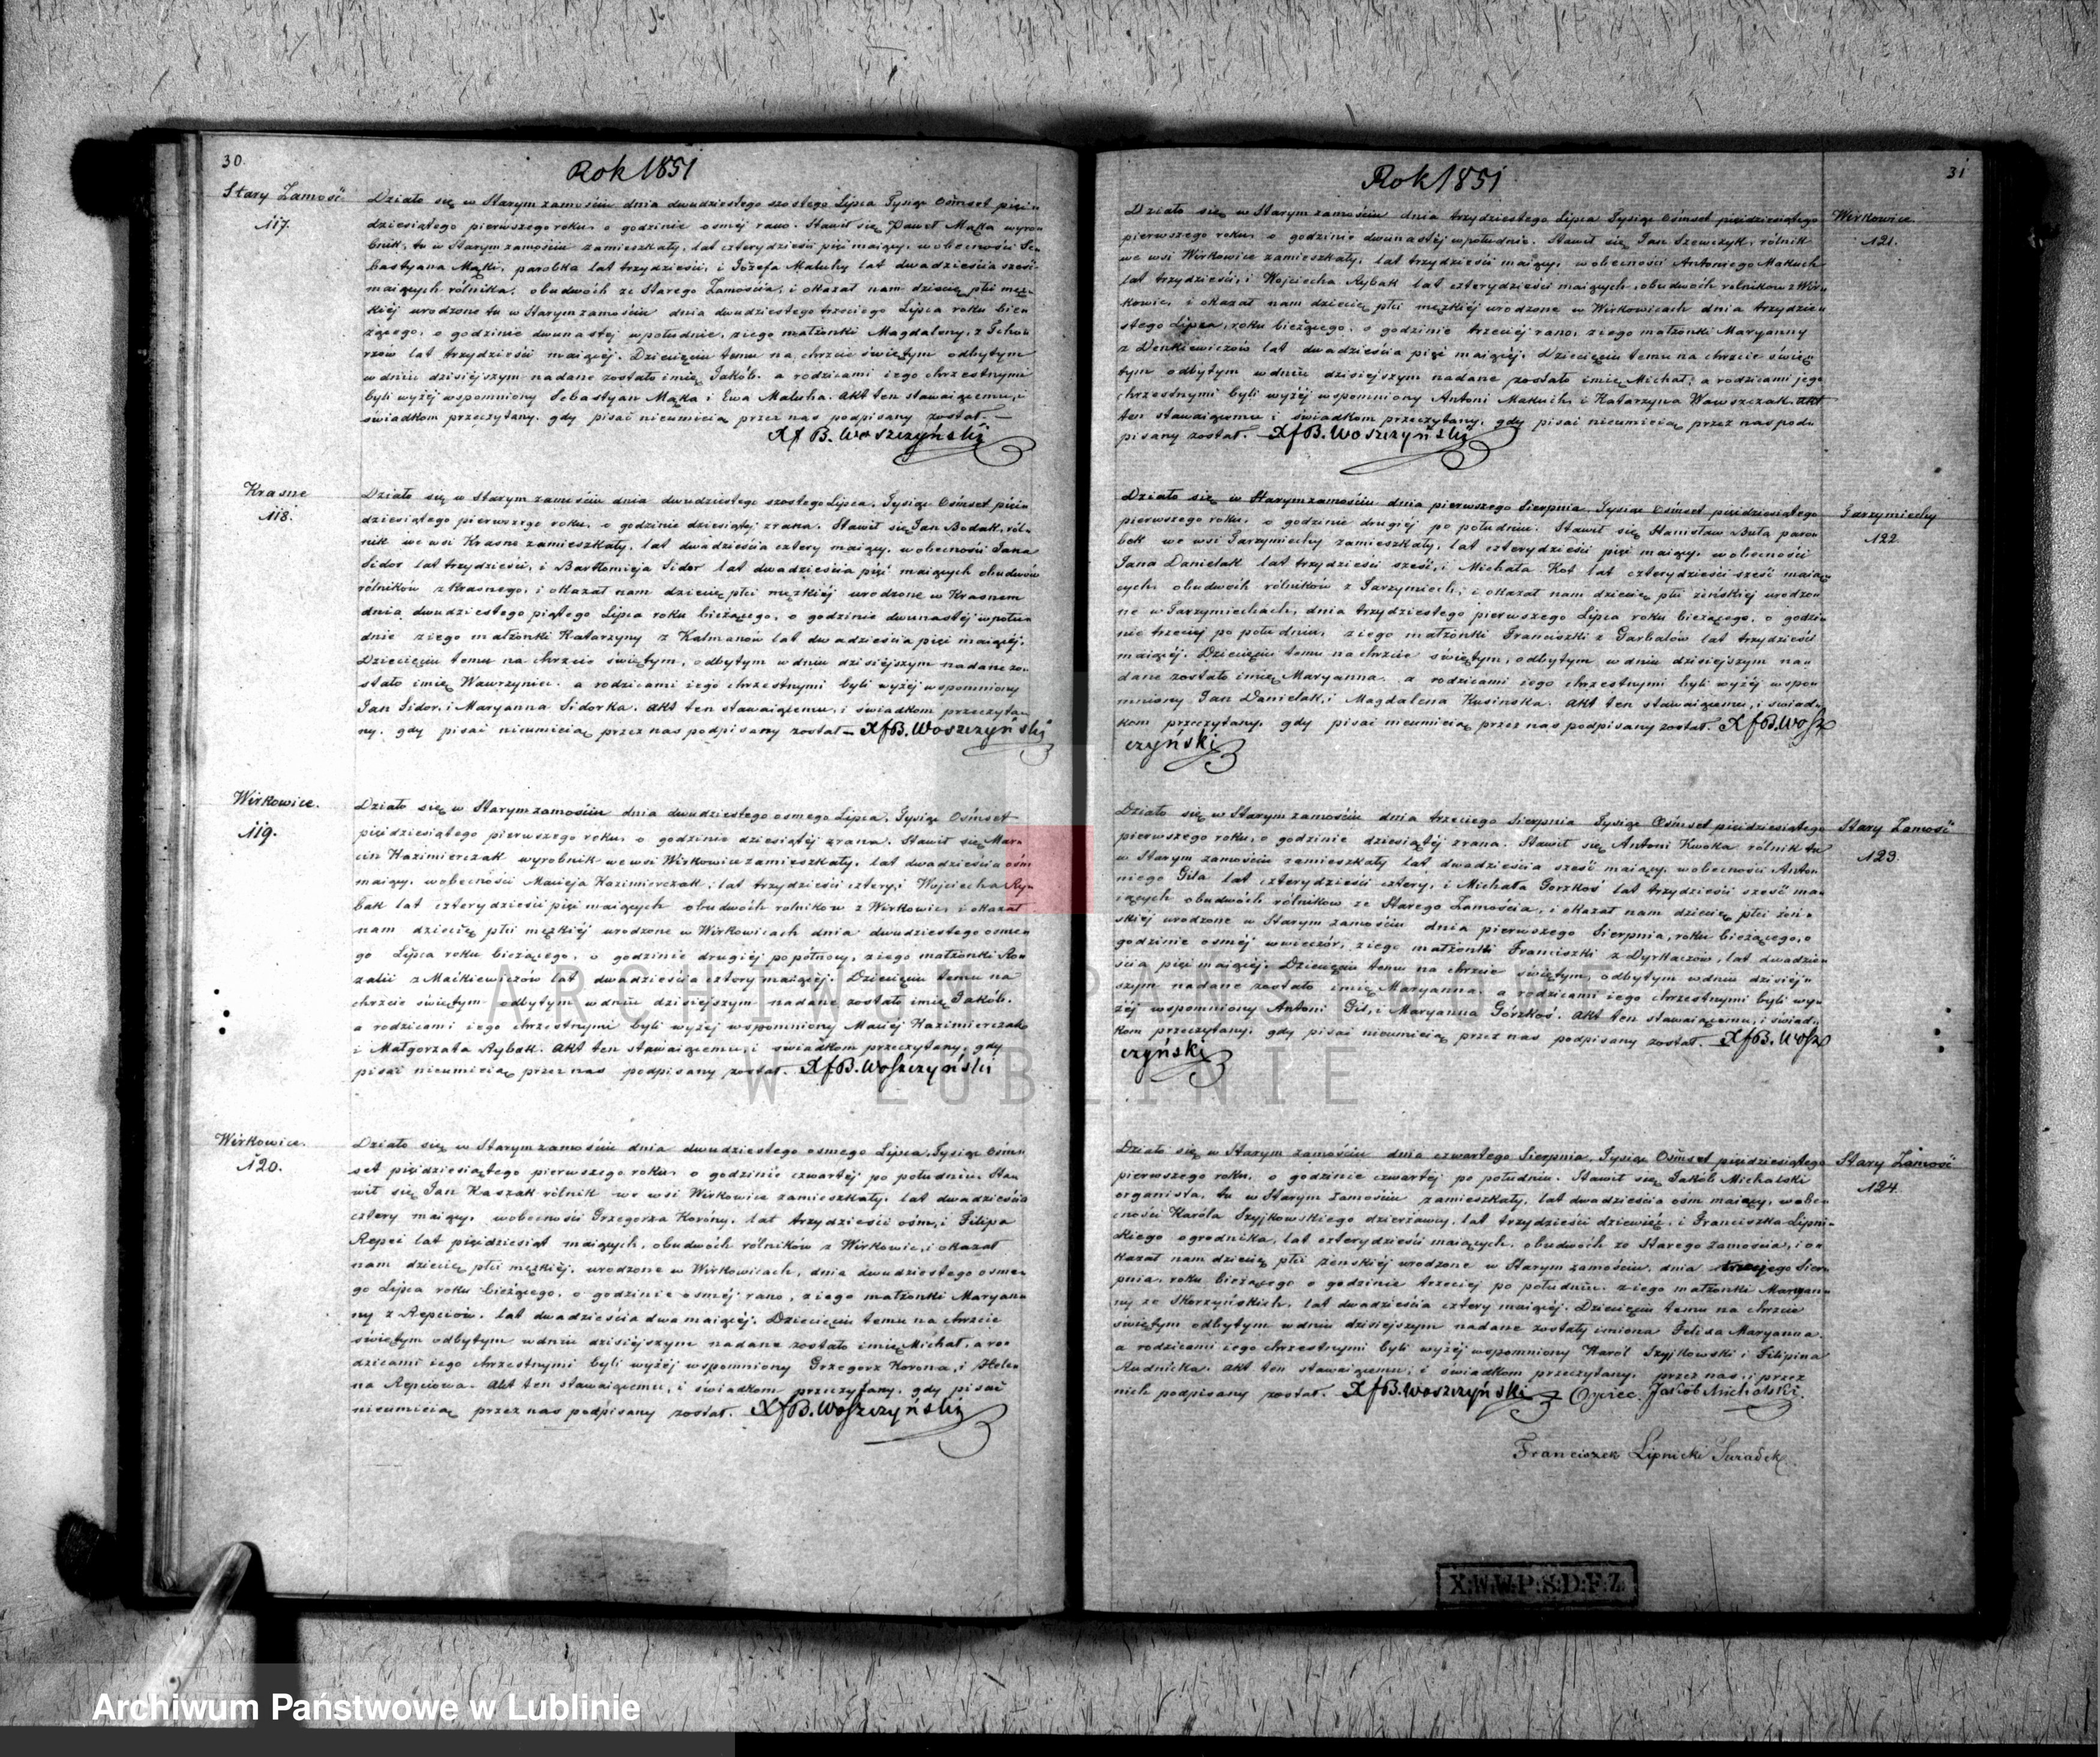 30
Rok 1851
Stary Zamość
117.
Działo się w Starym zamościu dnia dwudziestego szostego Lipca Tysiąc Ośmset pięć-
dziesiątego pierwszego roku, o godzinie osméj rano. Stawił się Paweł Mąka wyro-
bnik, tu w Starym zamościu zamieszkały, lat czterydzieści pięć maiący, w obecności Se-
bastyana Mąki, parobka lat trzydzieści, i Józefa Maluhy lat dwadzieścia sześć
maiących rólnika, obudwóch ze Starego Zamościa, i okazał nam dziecię płci męz-
kiéj urodzone tu w Starym zamościu dnia dwudziestego trzeciego Lipca roku bieź
żącego, o godzinie dwunastej w południe, z iego małżonki Magdaleny, z
lat trzydzieści maiącéj. Dziecięciu temu na chrzcie świętym odbytym
w dniu dzisiéjszym nadane zostało imię Jakób. a rodzicami iego chrzestnymi
byli wyżéj wspomniony Sebastyan Mąka i Ewa Maluha. Akt ten stawaiącemu, i
świadkom przeczytany, gdy pisać nieumieią przez nas podpisany został. —
X f B. Woszczyński
Krasne
118.
Działo się w Starym zamościu dnia dwudziestego szostego Lipca, Tysiąc Ośmset pięć
dziesiątego pierwszego roku, o godzinie dziesiątej zrana. Stawił się Jan Bodak, ról-
nik we wsi Krasne zamieszkały, lat dwadzieścia cztery maiący, w obecności Jana
Sidor lat trzydzieści, i Bartłomieja Sidor lat dwadzieścia pięć maiących obudwóch
rólników z Krasnego, i okazał nam dziecię płci męzkiéj urodzone w Krasnem
dnia dwudziestego piątego Lipca roku bieżącego, o godzinie dwunastéj w połu-
dnie z iego małżonki Katarzyny z Kalmanów lat dwadzieścia pięć maiącéj.
Dziecięciu temu na chrzcie świętym, odbytym w dniu dzisiéjszym nadane zo-
stało imię Wawrzyniec. a rodzicami iego chrzestnymi byli wyżéj wspomniony
Jan Sidor, i Maryanna Sidorka. Akt ten stawaiącemu, i świadkom przeczyta-
ny, gdy pisać nieumieią przez nas podpisany został — X f B. Woszczyński
Wirkowice.
119.
Działo się w Starym zamościu dnia dwudziestego osmego Lipca, Tysiąc Ośmset
pięćdziesiątego pierwszego roku, o godzinie dziesiątéj zrana. Stawił się Mar-
cin Kazimierczak wyrobnik we wsi Wirkowice zamieszkały, lat dwadzieścia ośm
maiący, w obecności Macieja Kazimierczak, lat trzydzieści cztery, i Wojciecha Ry-
bak lat czterydzieści pięć maiących obudwóch rolników z Wirkowic, i okazał
nam dziecię płci męzkiéj urodzone w Wirkowicach dnia dwudziestego osme-
go Lipca roku bieżącego, o godzinie drugiéj po północy, z iego małżonki Ro-
zalii z Maćkiewiczów lat dwadzieścia cztery maiącéj. Dziecięciu temu na
chrzcie świętym odbytym w dniu dzisiejszym nadane zostało imię Jakób.
a rodzicami iego chrzestnymi byli wyżéj wspomniony Maciéj Kazimierczak
i Małgorzata Rybak. Akt ten stawaiącemu, i świadkom przeczytany, gdy
pisać nieumieią przez nas podpisany został. X f B. Woszczyński
Wirkowice.
120.
Działo się w Starym zamościu dnia dwudziestego osmego Lipca, Tysiąc Ośm-
set pięćdziesiątego pierwszego roku o godzinie czwartéj po południu. Sta-
wił się Jan Kaszak rólnik we wsi Wirkowice zamieszkały, lat dwadzieścia
cztery maiący, w obecności Grzegorza Korony, lat trzydzieści ośm, i Filipa
Repeć lat pięćdziesiąt maiących, obudwóch rólników z Wirkowic, i okazał
nam dziecię płci męzkiéj, urodzone w Wirkowicach, dnia dwudziestego osme-
go Lipca roku bieżącego, o godzinie osméj rano, z iego małżonki Maryan-
ny z Repciów, lat dwadzieścia dwa maiącéj. Dziecięciu temu na chrzcie
świętym odbytym w dniu dzisiejszym nadane zostało imię Michał, a ro-
dzicami iego chrzestnymi byli wyżéj wspomniony Grzegorz Korona, i Hele-
na Repciowa. Akt ten stawaiącemu, i świadkom przeczytany, gdy pisać
nieumieią przez nas podpisany został. X f B. Woszczyński
31
Rok 1851
Wirkowice
121.
Działo się w Starym zamościu dnia trzydziestego Lipca Tysiąc Ośmset pięćdziesiątego
pierwszego roku, o godzinie dwunastéj w południe. Stawił się Jan Szewczyk, rólnik
we wsi Wirkowice zamieszkały, lat trzydzieści maiący, w obecności Antoniego Makuch
lat trzydzieści, i Wojciecha Rybak lat czterydzieści maiących, obudwóch rolników z Wir-
kowic, i okazał nam dziecię płci męzkiéj urodzone w Wirkowicach dnia trzydzie-
stego Lipca, roku bieżącego, o godzinie trzeciéj rano, z iego małżonki Maryanny
z Denkiewiczów lat dwadzieścia pięć maiącéj. Dziecięciu temu na chrzcie świę-
tym odbytym w dniu dzisiejszym nadane zostało imię Michał, a rodzicami jego
chrzestnymi byli wyżéj wspomniony Antoni Makuch, i Katarzyna Wawszczak. Akt
ten stawaiącemu i świadkom przeczytany, gdy pisać nieumieią przez nas pod-
pisany został. X f B. Woszczyński
Tarzymiechy
122.
Działo się w Starym zamościu dnia pierwszego Sierpnia, Tysiąc Ośmset pięćdziesiątego
pierwszego roku, o godzinie drugiéj po południu. Stawił się Stanisław Buła paro-
bek we wsi Tarzymiechy zamieszkały, lat czterydzieści pięć maiący, w obecności
Jana Danielak lat trzydzieści sześć, i Michała Kot lat czterydzieści sześć maią-
cych obudwóch rólników z Tarzymiech, i okazał nam dziecię płci żeńskiej urodzo-
ne w Tarzymiechach, dnia trzydziestego pierwszego Lipca roku bieżącego, o godzi-
nie trzeciej po południu, z iego małżonki Franciszki z Garbalów lat trzydzieści
maiącéj. Dziecięciu temu na chrzcie świętym, odbytym w dniu dzisiejszym na-
dane zostało imię Maryanna. a rodzicami iego chrzestnymi byli wyżéj wspo-
mniony Jan Danielak, i Magdalena Kusinska. Akt ten stawaiącemu, i świad-
kom przeczytany, gdy pisać nieumieią przez nas podpisany został. X f B. Wosz
czyński
Stary Zamość
123.
Działo się w Starym zamościu dnia trzeciego Sierpnia Tysiąc Ośmset pięćdziesiątego
pierwszego roku, o godzinie dziesiątéj zrana. Stawił się Antoni Kwoka rólnik tu
w Starym zamościu zamieszkały lat dwadzieścia sześć maiący, w obecności Anto-
niego Gila lat czterydzieści cztery, i Michała Gorzkoś lat trzydzieści sześć ma-
iących obudwóch rólników ze Starego Zamościa, i okazał nam dziecię płci żeń-
skiéj urodzone w Starym zamościu dnia pierwszego Sierpnia, roku bieżącego, o
godzinie osméj wieczór, z iego małżonki Franciszki z Dyrkaczów, lat dwadzie-
ścia pięć maiącéj. Dziecięciu temu na chrzcie świętym, odbytym w dniu dzisiéj-
szym nadane zostało imię Maryanna. a rodzicami iego chrzestnymi byli wy-
żéj wspomniony Antoni Gil, i Maryanna Gorzkoś. Akt ten stawaiącemu, i świad-
kom przeczytany, gdy pisać nieumieią przez nas podpisany został. X f B. Wosz
czyński
Stary Zamość
124.
Działo się w Starym zamościu dnia czwartego Sierpnia, Tysiąc Ośmset pięćdziesiątego
pierwszego roku, o godzinie czwartéj po południu. Stawił się Jakób Michalski
organista, tu w Starym zamościu zamieszkały, lat dwadzieścia ośm maiący, w obe-
cności Karóla Szyjkowskiego dzierżawcy, lat trzydzieści dziewięć, i Franciszka Lipni-
ckiego ogrodnika, lat czterydzieści maiących, obudwóch ze Starego zamościa, i o-
kazał nam dziecię płci żenskiéj urodzone w Starym zamościu, dnia trzeciego Sier-
pnia, roku bieżącego o godzinie trzeciej po południu, z iego małżonki Maryan-
ny ze Skorzyńskich, lat dwadzieścia cztery maiącéj. Dziecięciu temu na chrzcie
świętym odbytym w dniu dzisiejszym nadane zostały imiona Felixa Maryanna.
a rodzicami iego chrzestnymi byli wyżéj wspomniony Karól Szyjkowski i Filipina
Rudnicka. Akt ten stawaiącemu, i świadkom przeczytany, przez nas, i przez
nich podpisany został. X f B. Woszczyński Oyciec Jakób Michalski.
Franciszek Lipnicki Swiadek
X:W:W:P:S:D:F:Z.
ARCHIWUM PAŃSTWOWE
W LUBLINIE
Archiwum Państwowe w Lublinie